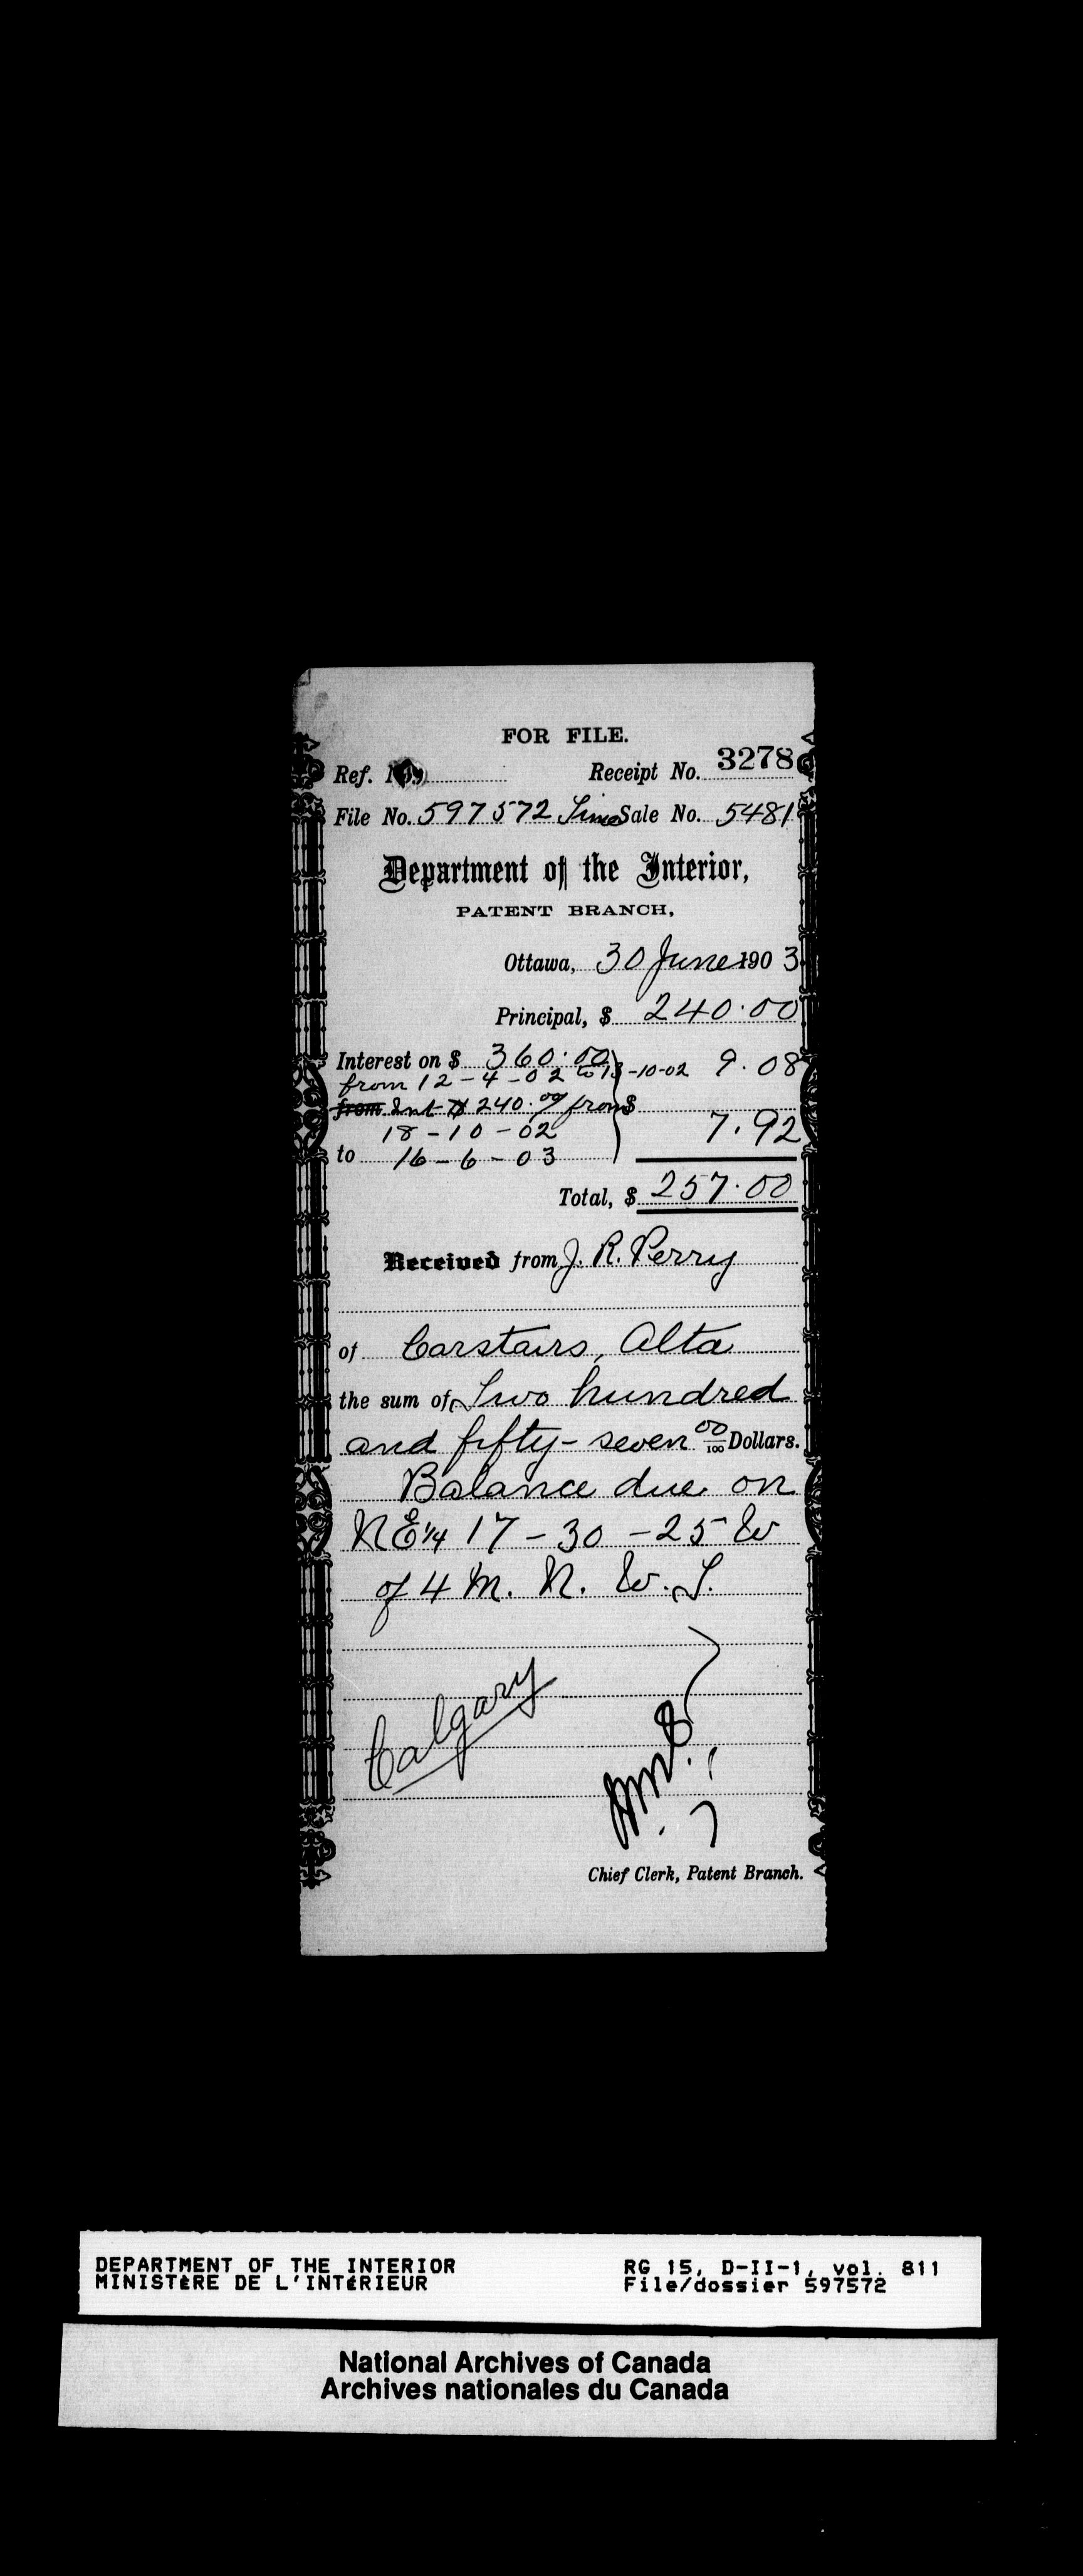 FOR FILE.
Ref. Receipt No. 3278
File No. 597572 Time Sale No. 5481
Department of the Interior,
PATENT BRANCH,
Ottawa, 30 June 1903
Principal, $ 240.00
Interest on $ 360.00
from 12-4-02 to 18-10-02 9.08
from Int $ 240.00 from $
18-10-02 7.92
to 16-6-03
Total, $ 257.00
Received from J. R. Perry
of Carstairs, Alta
the sum of Two hundred
and fifty-seven 00/100 Dollars.
Balance due on
NE 1/4 17-30-25 W
of 4 M. N. W. T.
Calgary
Chief Clerk, Patent Branch.
DEPARTMENT OF THE INTERIOR RG 15, D-II-1, vol. 811
MINISTÈRE DE L'INTÉRIEUR File/dossier 597572
National Archives of Canada
Archives nationales du Canada